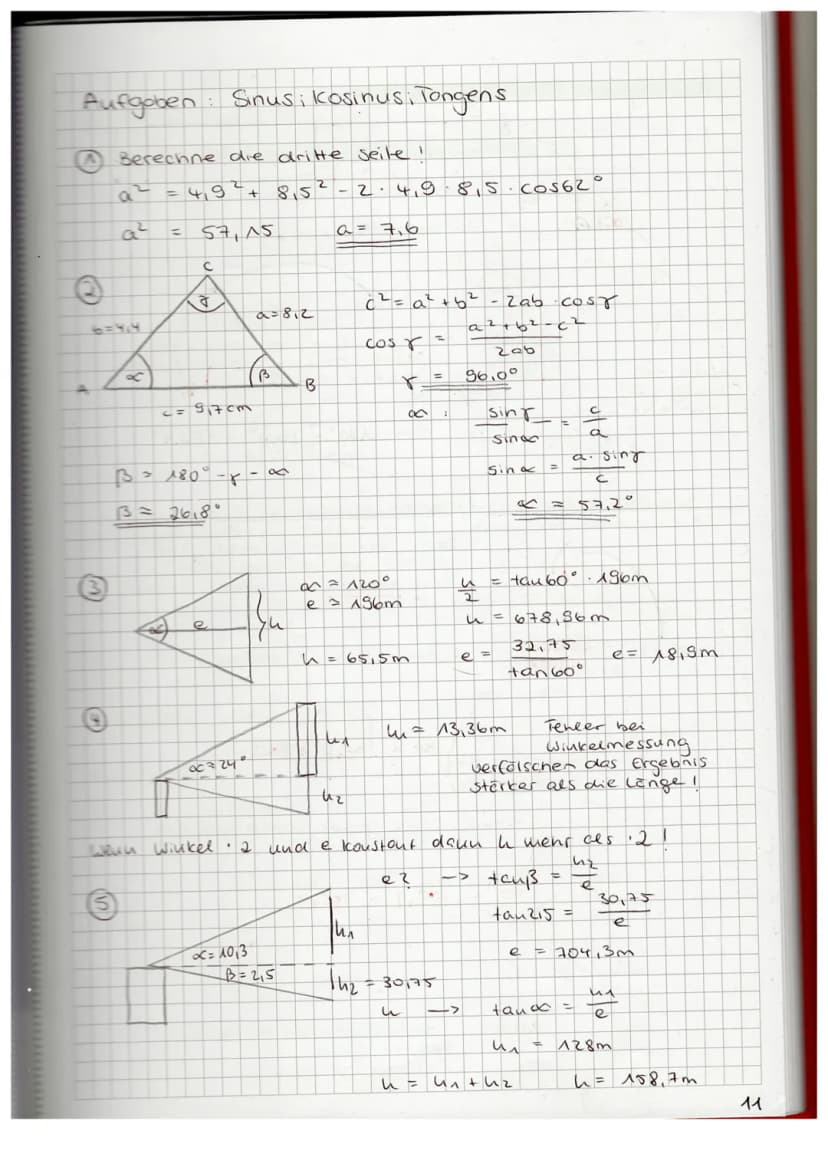 Aufgaben: Sinus; Kosinus; Tangens
① Berechne die dritte Seite!
a² = 4,9² + 8,5² - 2 · 4,9 · 8,5 · cos62°
a² = 57,15   a = 7,6
②
C
γ
b=4,4
a=8,2
A
α
β
B
c = 9,7cm
c² = a² + b² - 2ab · cosγ
cos γ = (a² + b² - c²) / 2ab
γ = 96,0°
α : sinγ / sinα = c / a
sinα = a · sinγ / c
α = 57,2°
β = 180° - γ - α
β = 26,8°
③
α
e
h
α = 120°
e = 196m
h = 65,5m
h/2 = tan60° · 196m
h = 678,96m
e = 32,75 / tan60°   e = 18,9m
④
α = 24°
h1
h2
h1 = 13,36m
Fehler bei
Winkelmessung
verfälschen das Ergebnis
stärker als die Länge!
Wenn Winkel · 2 und e konstant dann h mehr als · 2!
⑤
α = 10,3
β = 2,5
h1
h2 = 30,75
e? → tanβ = h2 / e
tan2,5 = 30,75 / e
e = 704,3m
h → tanα = h1 / e
h1 = 128m
h = h1 + h2   h = 158,7m
11